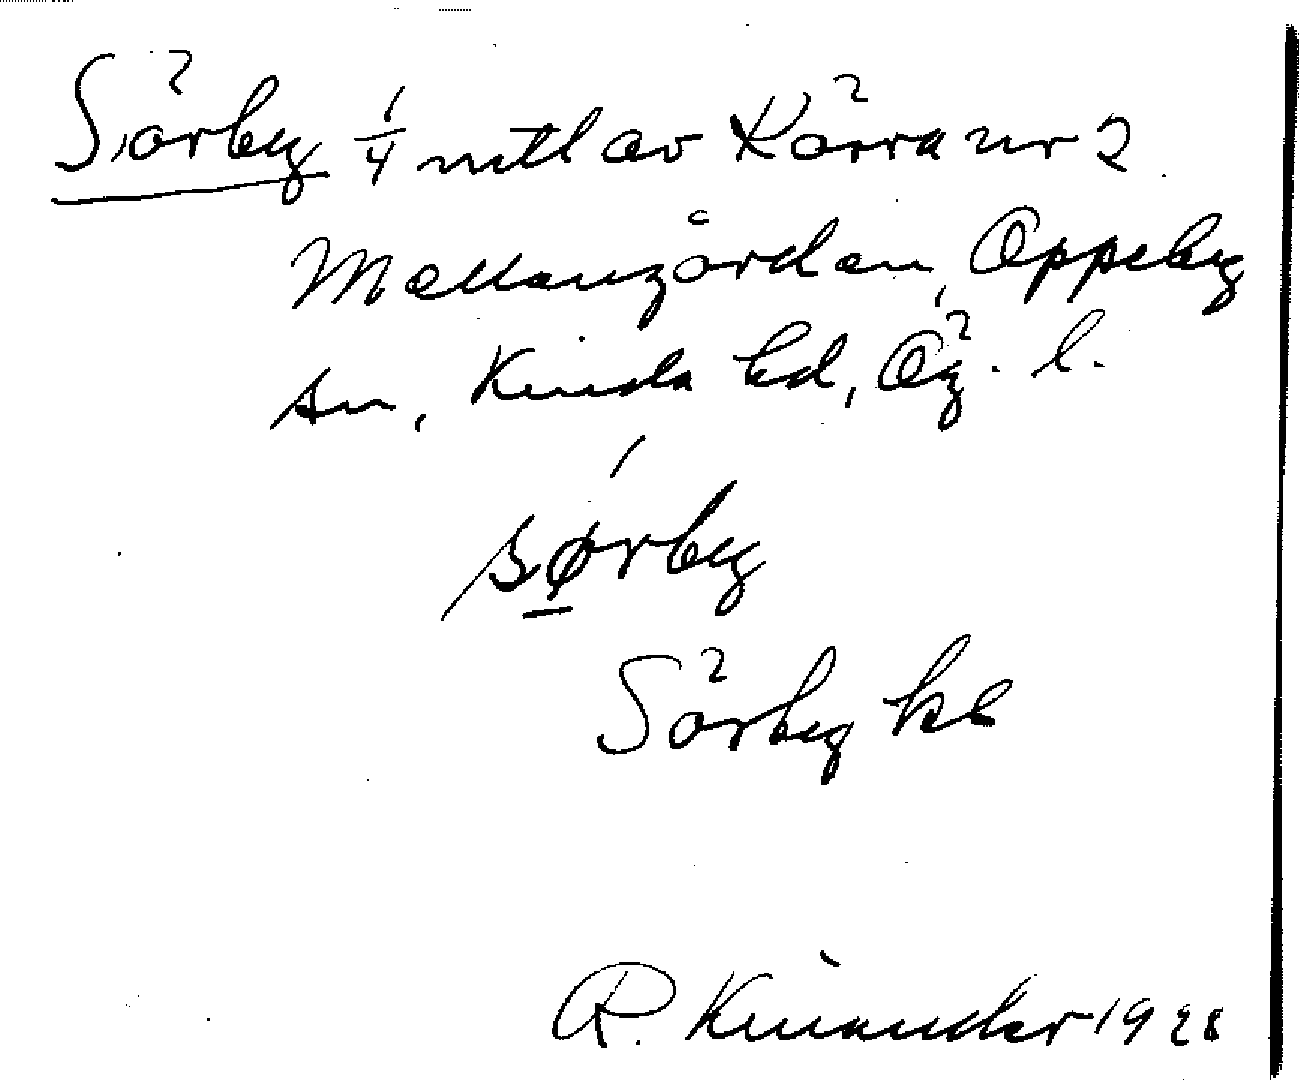 Sörby 1/4 mtl av Kärra nr 2
Mellangården, Oppeby
sn, Kinda hd, Ög. l.
sø̲rby
Sörby ke
R. Kinander 1928